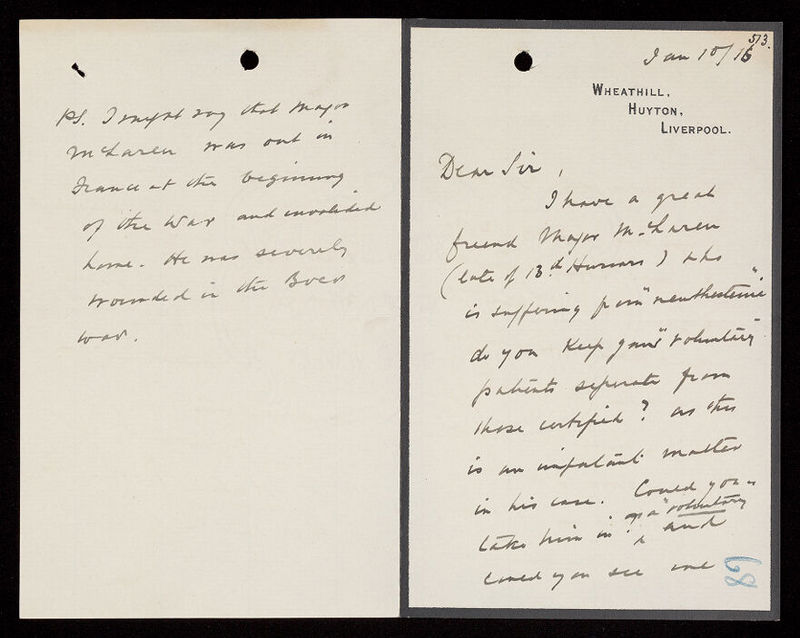 PS. I might say that Major
McLaren was out in
France at the beginning
of the War and invalided
home. He was severely
wounded in the Boer
war.
513.
Jan 10/16
WHEATHILL,
HUYTON,
LIVERPOOL.
Dear Sir,
I have a great
friend Major McLaren
(late of 13th Hussars) who
is suffering from "neurasthenia"
do you keep your "voluntary"
patients seperate from
those certified? as this
is an important matter
in his case. Could you
as a "voluntary"
take him in and
could you see me
89